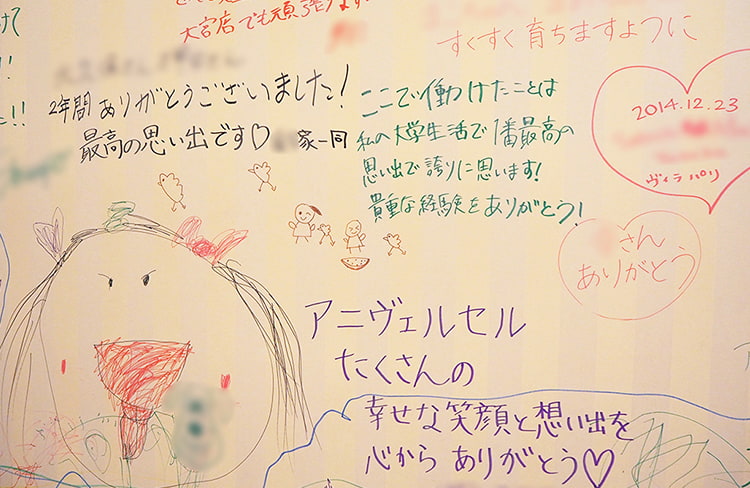 大宮店でも頑張ります。
すくすく育ちますように
2年間ありがとうございました!
最高の思い出です♡ 家一同
ここで働けたことは
私の大学生活で1番最高の
思い出で誇りに思います!
貴重な経験をありがとう!
2014.12.23
ヴィラ パリ
さん
ありがとう
アニヴェルセル
たくさんの
幸せな笑顔と想い出を
心から ありがとう♡